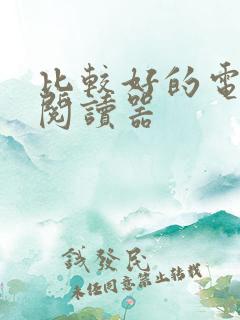 比較好的電
閱讀器
錢發民
未經同意禁止轉載